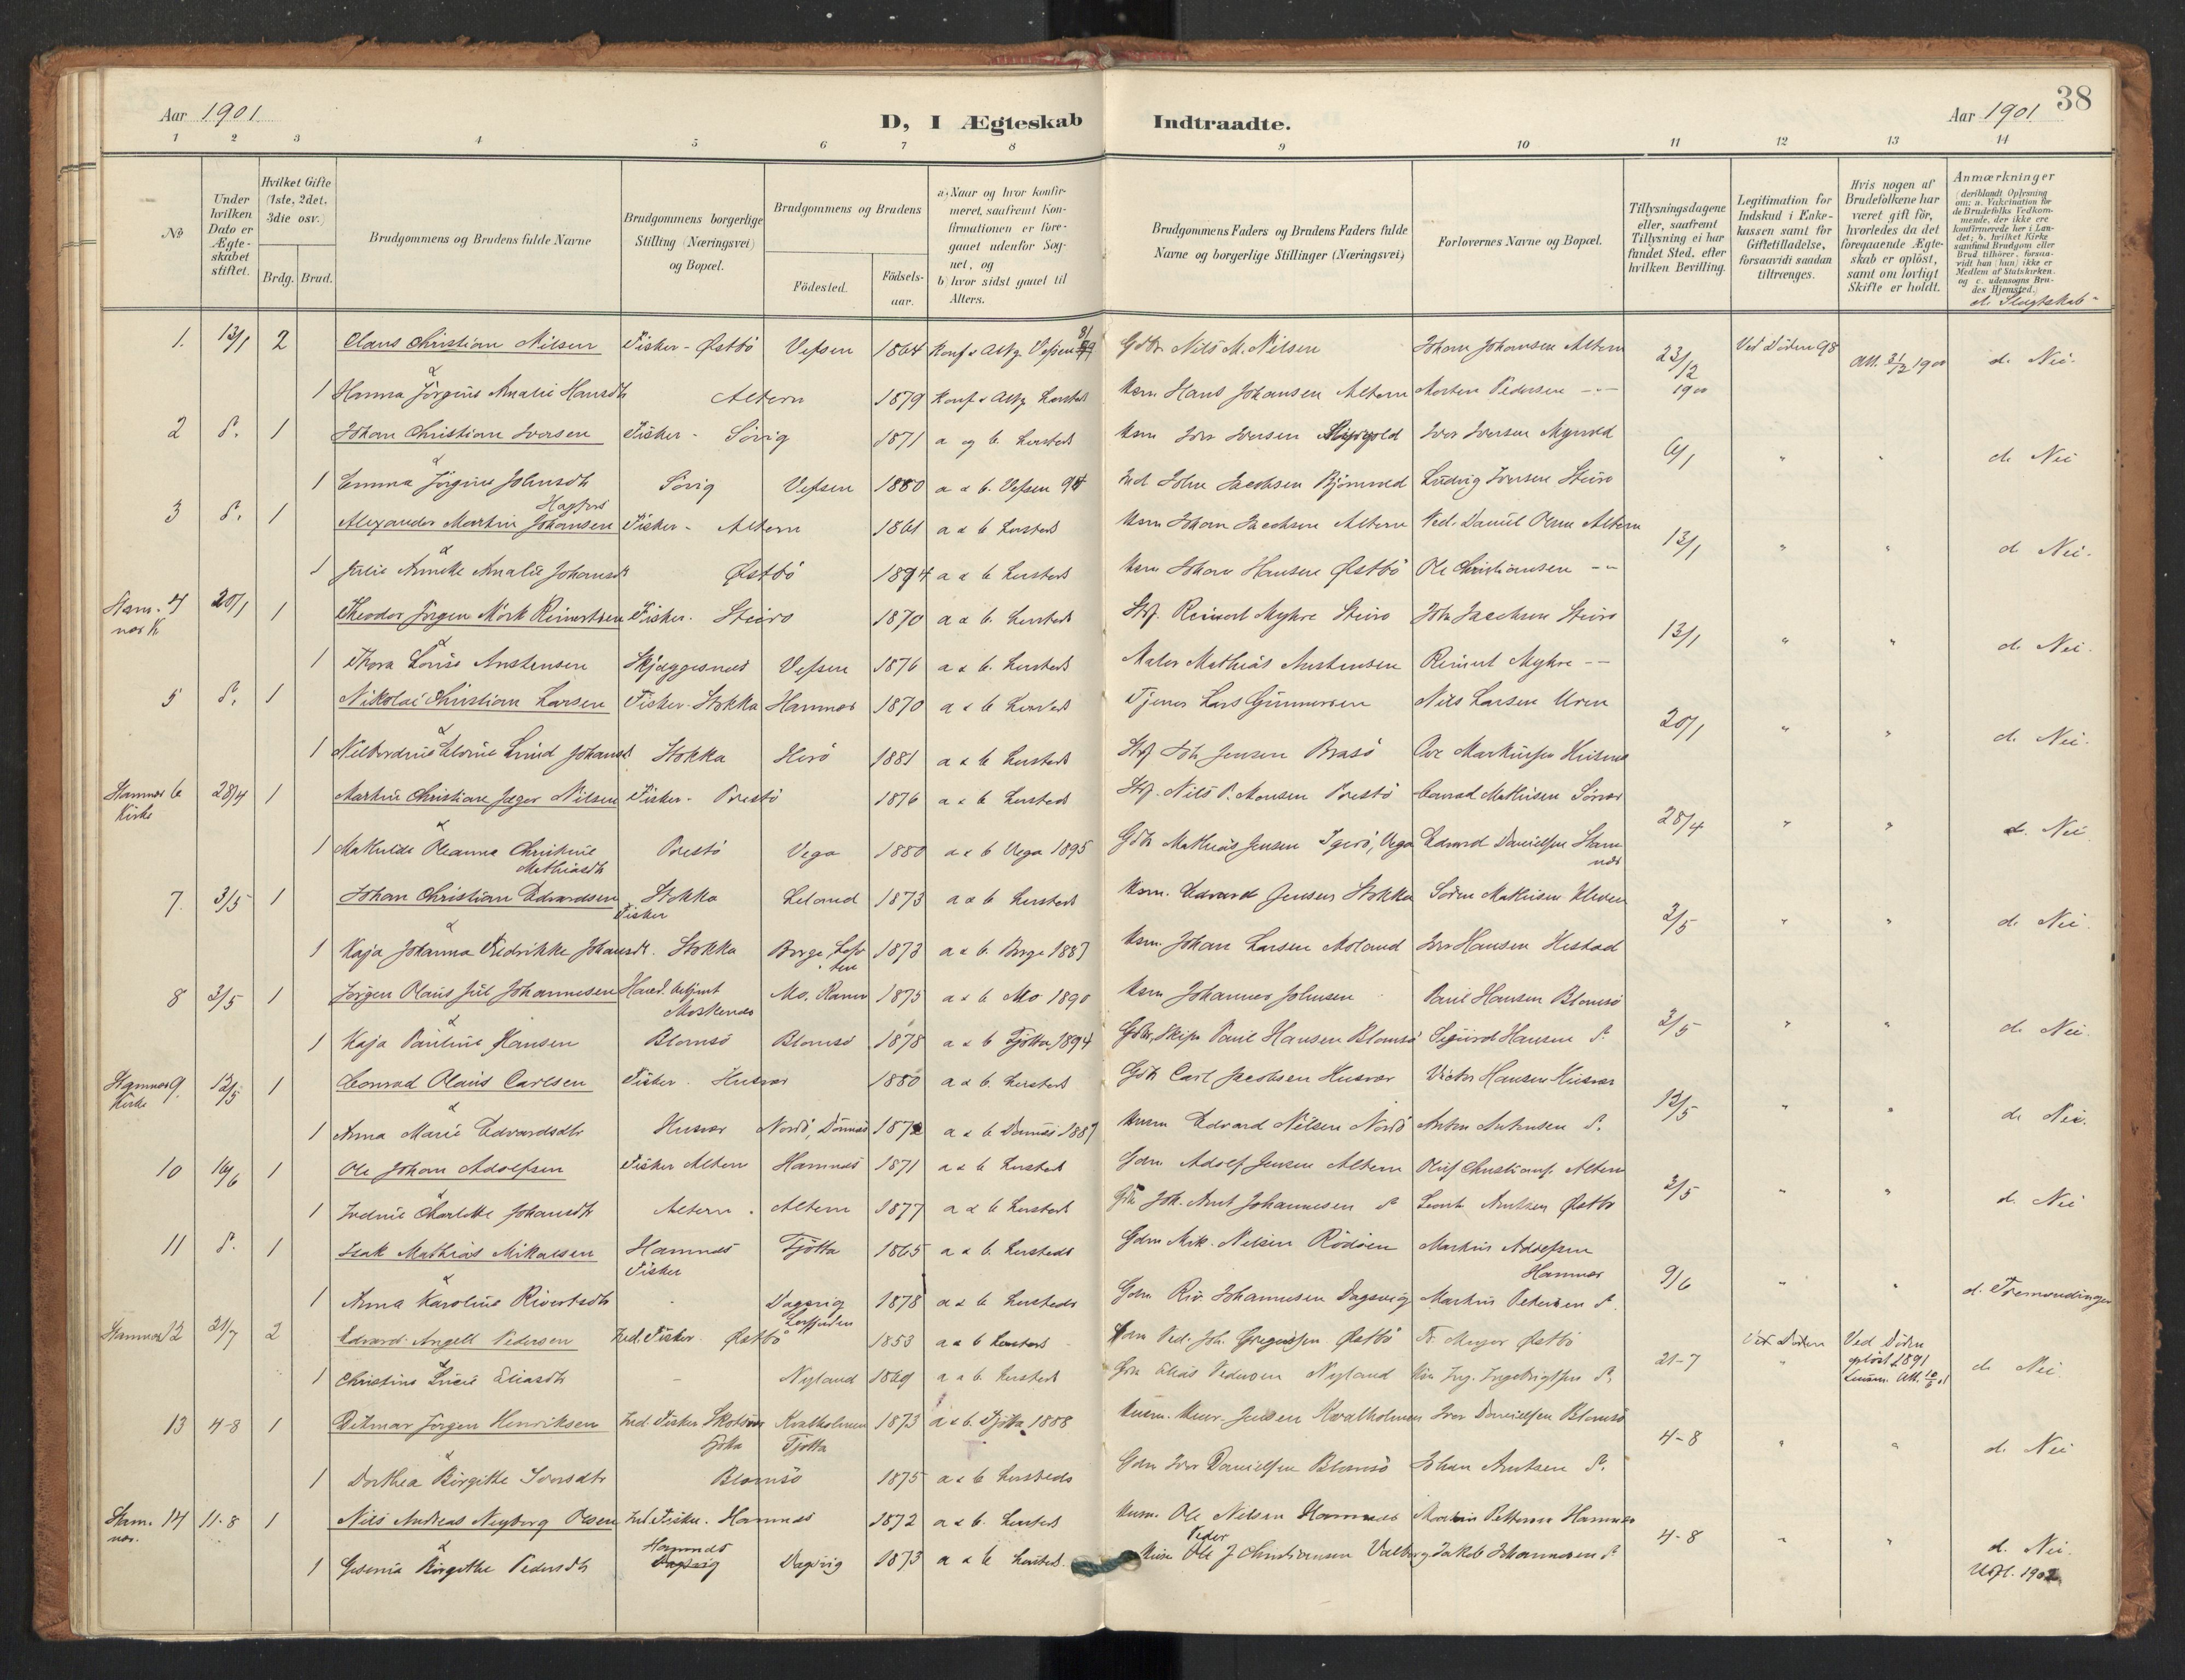 Aar 1901.
D, I Ægteskab Indtraadte.
Aar 1901
38
1 2 3 4 5 6 7 8 9 10 11 12 13 14
No
Under hvilken Dato er Ægteskabet stiftet.
Hvilket Gifte (1ste, 2det, 3die osv.)
Brdg. Brud.
Brudgommens og Brudens fulde Navne
Brudgommens borgerlige Stilling (Næringsvei) og Bopæl.
Brudgommens og Brudens
Födested.
Födselsaar.
a) Naar og hvor konfirmeret, saafremt Konfirmationen er foregaaet udenfor Sognet, og
b) hvor sidst gaaet til Alters.
Brudgommens Faders og Brudens Faders fulde Navne og borgerlige Stillinger (Næringsvei)
Forlovernes Navne og Bopæl.
Tillysningsdagene eller, saafremt Tillysning ei har fundet Sted, efter hvilken Bevilling.
Legitimation for Indskud i Enkekassen samt for Giftetilladelse, forsaavidt saadan tiltrænges.
Hvis nogen af Brudefolkene har været gift för, hvorledes da det foregaaende Ægteskab er oplöst, samt om lovligt Skifte er holdt.
Anmærkninger (deriblandt Oplysning om: a. Vakcination for de Brudefolks Vedkommende, der ikke ere konfirmerede her i Landet; b. hvilket Kirkesamfund Brudgom eller Brud tilhörer, forsaavidt han (hun) ikke er Medlem af Statskirken. og c. udensogns Brudes Hjemsted.)
d. Slegtskab
1. 13/1 2 Claus Christian Nilsen Fisker - Østbö Vefsen 1864 Konf & Altg. Vefsen Gdbr Nils M. Nilsen Johan Johansen Altern 23/12 1900 Ved Döden 98 Att. 1900 d. Nei.
&
1 Hanna Jörgine Amalie Hansdtr Altern 1879 Konf & Altg. hersteds Hsm Hans Johansen Altern Morten Pedersen -"-
2 d. 1 Johan Christian Iversen Fisker - Sövig 1871 a og b. hersteds Hsm Iver Iversen Iver Iversen Myrvold 6/1 " " d. Nei
&
1 Emma Jörgine Johnsdtr Sövig Vefsen 1880 a & b. Vefsen 94 Ind John Jacobsen Bjornvod Ludvig Iversen Steiro
3 d. 1 Alexander Martin Johansen Hagfors Fisker - Altern 1861 a & b hersteds Hsm Johan Jacobsen Altern Ped. Daniel Olsen Altern 13/1 " " d. Nei.
&
1 Julie Annette Amalie Johansdtr Østbö 1874 a & b hersteds Hsm Johan Hansen Østbö Ole Christiansen -"-
Hamnæs K 4 20/1 1 Theodor Jörgen Mörk Reinertsen Fisker. Steiro 1870 a & b. hersteds Stf. Reinert Myhre Steiro Joh Jacobsen Steiro 13/1 " " d. Nei.
&
1 Thora Lovise Anstensen Skjeggesnes Vefsen 1876 a & b. hersteds Maler Mathias Anstensen Reinert Myhre -"-
5 d. 1 Nikolai Christian Larsen Fisker - Stokka Hamnes 1870 a & b hersteds Tjener Lars Gunnersen Nils Larsen Uren 20/1 " " d. Nei.
&
1 Johansd Stokka Herö 1881 a & b hersteds Stf Joh Jensen Brasö
Hamnes Kirke 6 28/4 1 Martin Christian Jæger Nilsen Fisker - Prestö 1876 a & b hersteds Stf. Nils P. Monsen Prestö Conrad Mathisen Sörvær 28/4 " " d. Nei.
&
1 Mathilde Oleanna Christine Mathiasdtr Prestö Vega 1880 a & b Vega 1895 Gdbr Mathias Jensen Igerö, Vega Edvard Danielsen Hamnæs
7. 3/5 1 Johan Christian Edvardsen Stokka Fisker Leland 1873 a & b hersteds Hsm. Edvard Jensen Stokka Sören Mathisen 3/5 " " d. Nei.
&
1 Kaja Johanna Fredrikke Johansdt. Stokka Borge, Lofoten 1873 a & b. Borge 1887 Hsm. Johan Larsen Moland Iver Hansen Hestad
8 3/5 1 Jörgen Olaus Juul Johannesen Hand. betjent Moskenes Mo. Ranen 1875 a & b Mo 1890 Hsm Johannes Johnsen Paul Hansen Blomsö 3/5 " " d. Nei.
&
1 Kaja Pauline Hansen Blomsö Blomsö 1878 a & b Tjötta 1894 Gdbr, Skipr Paul Hansen Blomsö Sigurd Hansen d.
Hamnes Kirke 9. 12/5 1 Conrad Olaus Carlsen Fisker. Husvær 1880 a & b. hersteds Gdbr Carl Jacobsen Husvær Victor Hansen Husvær 12/5 " " d. Nei.
&
1 Anna Marie Edvardsdtr Husvær Nordö, Dönnes 1872 a & b Dönnes 1887 Husm Edvard Nilsen Nordö Anton Antonsen d.
10 16/6 1 Ole Johan Adolfsen Fisker Altern Hamnes 1871 a & b hersteds Gdm Adolf Jensen Altern Oluf Christians. Altern 3/5 " " d. Nei
&
1 Indine Charlotte Johansdtr Altern. Altern 1877 a & b hersteds Gdbr Joh. Arnt Johannesen d Arntsen Østbö
11 d. 1 Isak Mathias Mikalsen Hamnes Fisker Tjötta 1865 a & b. hersteds Gdm Mik. Nilsen Rödöen Markus Adolfsen Hamnes 9/6 " " d. Tremendinger
&
1 Anna Karoline Rivertsdtr - Dagsvig 1878 a & b hersteds Gdm Riv. Johannesen Dagsvig Markus Petersen d.
Hamnes 12 21/7 2 Edvard Angell Pedersen Ind. Fisker. Østbö 1853 a & b hersteds Gdm Ped. Joh. Gregusen Østbö Fr. Meyer Østbö 21-7 Ved Döden Ved Döden oplöst 1891 d. Nei.
&
1 Christine Lucie Eliasdtr - Nyland 1869 a & b. hersteds Gdm Elias Pedersen Nyland Ing. Ingebrigtsen d.
13 4-8 1 Ditmar Jörgen Henriksen Ind. Fisker Tjötta Kvalholmen Tjötta 1873 a & b. Tjötta 1888 Husm. Henr. Jensen Kvalholmen Iver Danielsen Blomsö 4-8 " " d. Nei
&
1 Dorthea Birgitte Iversdtr Blomsö 1875 a & b hersteds Gdm Iver Danielsen Blomsö Johan Arntsen d.
Hamnæs. 14 11-8 1 Nils Andreas Nyborg Olsen Ind. Fisker. Hamnes 1872 a & b. hersteds Husm. Ole Nilsen Hamnes Martin Pettersen Hamnes 4-8 " " d. Nei.
&
1 Gesenia Birgithe Pedersdtr Hamnes Dagsvig Dagsvig 1873 a & b hersteds. Husm Peder Ole J Christiansen Valberg Jakob Johannesen d.
Udfl. 1902